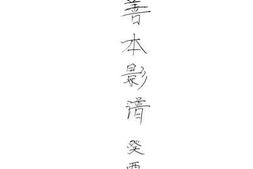 善本影谱 癸酉